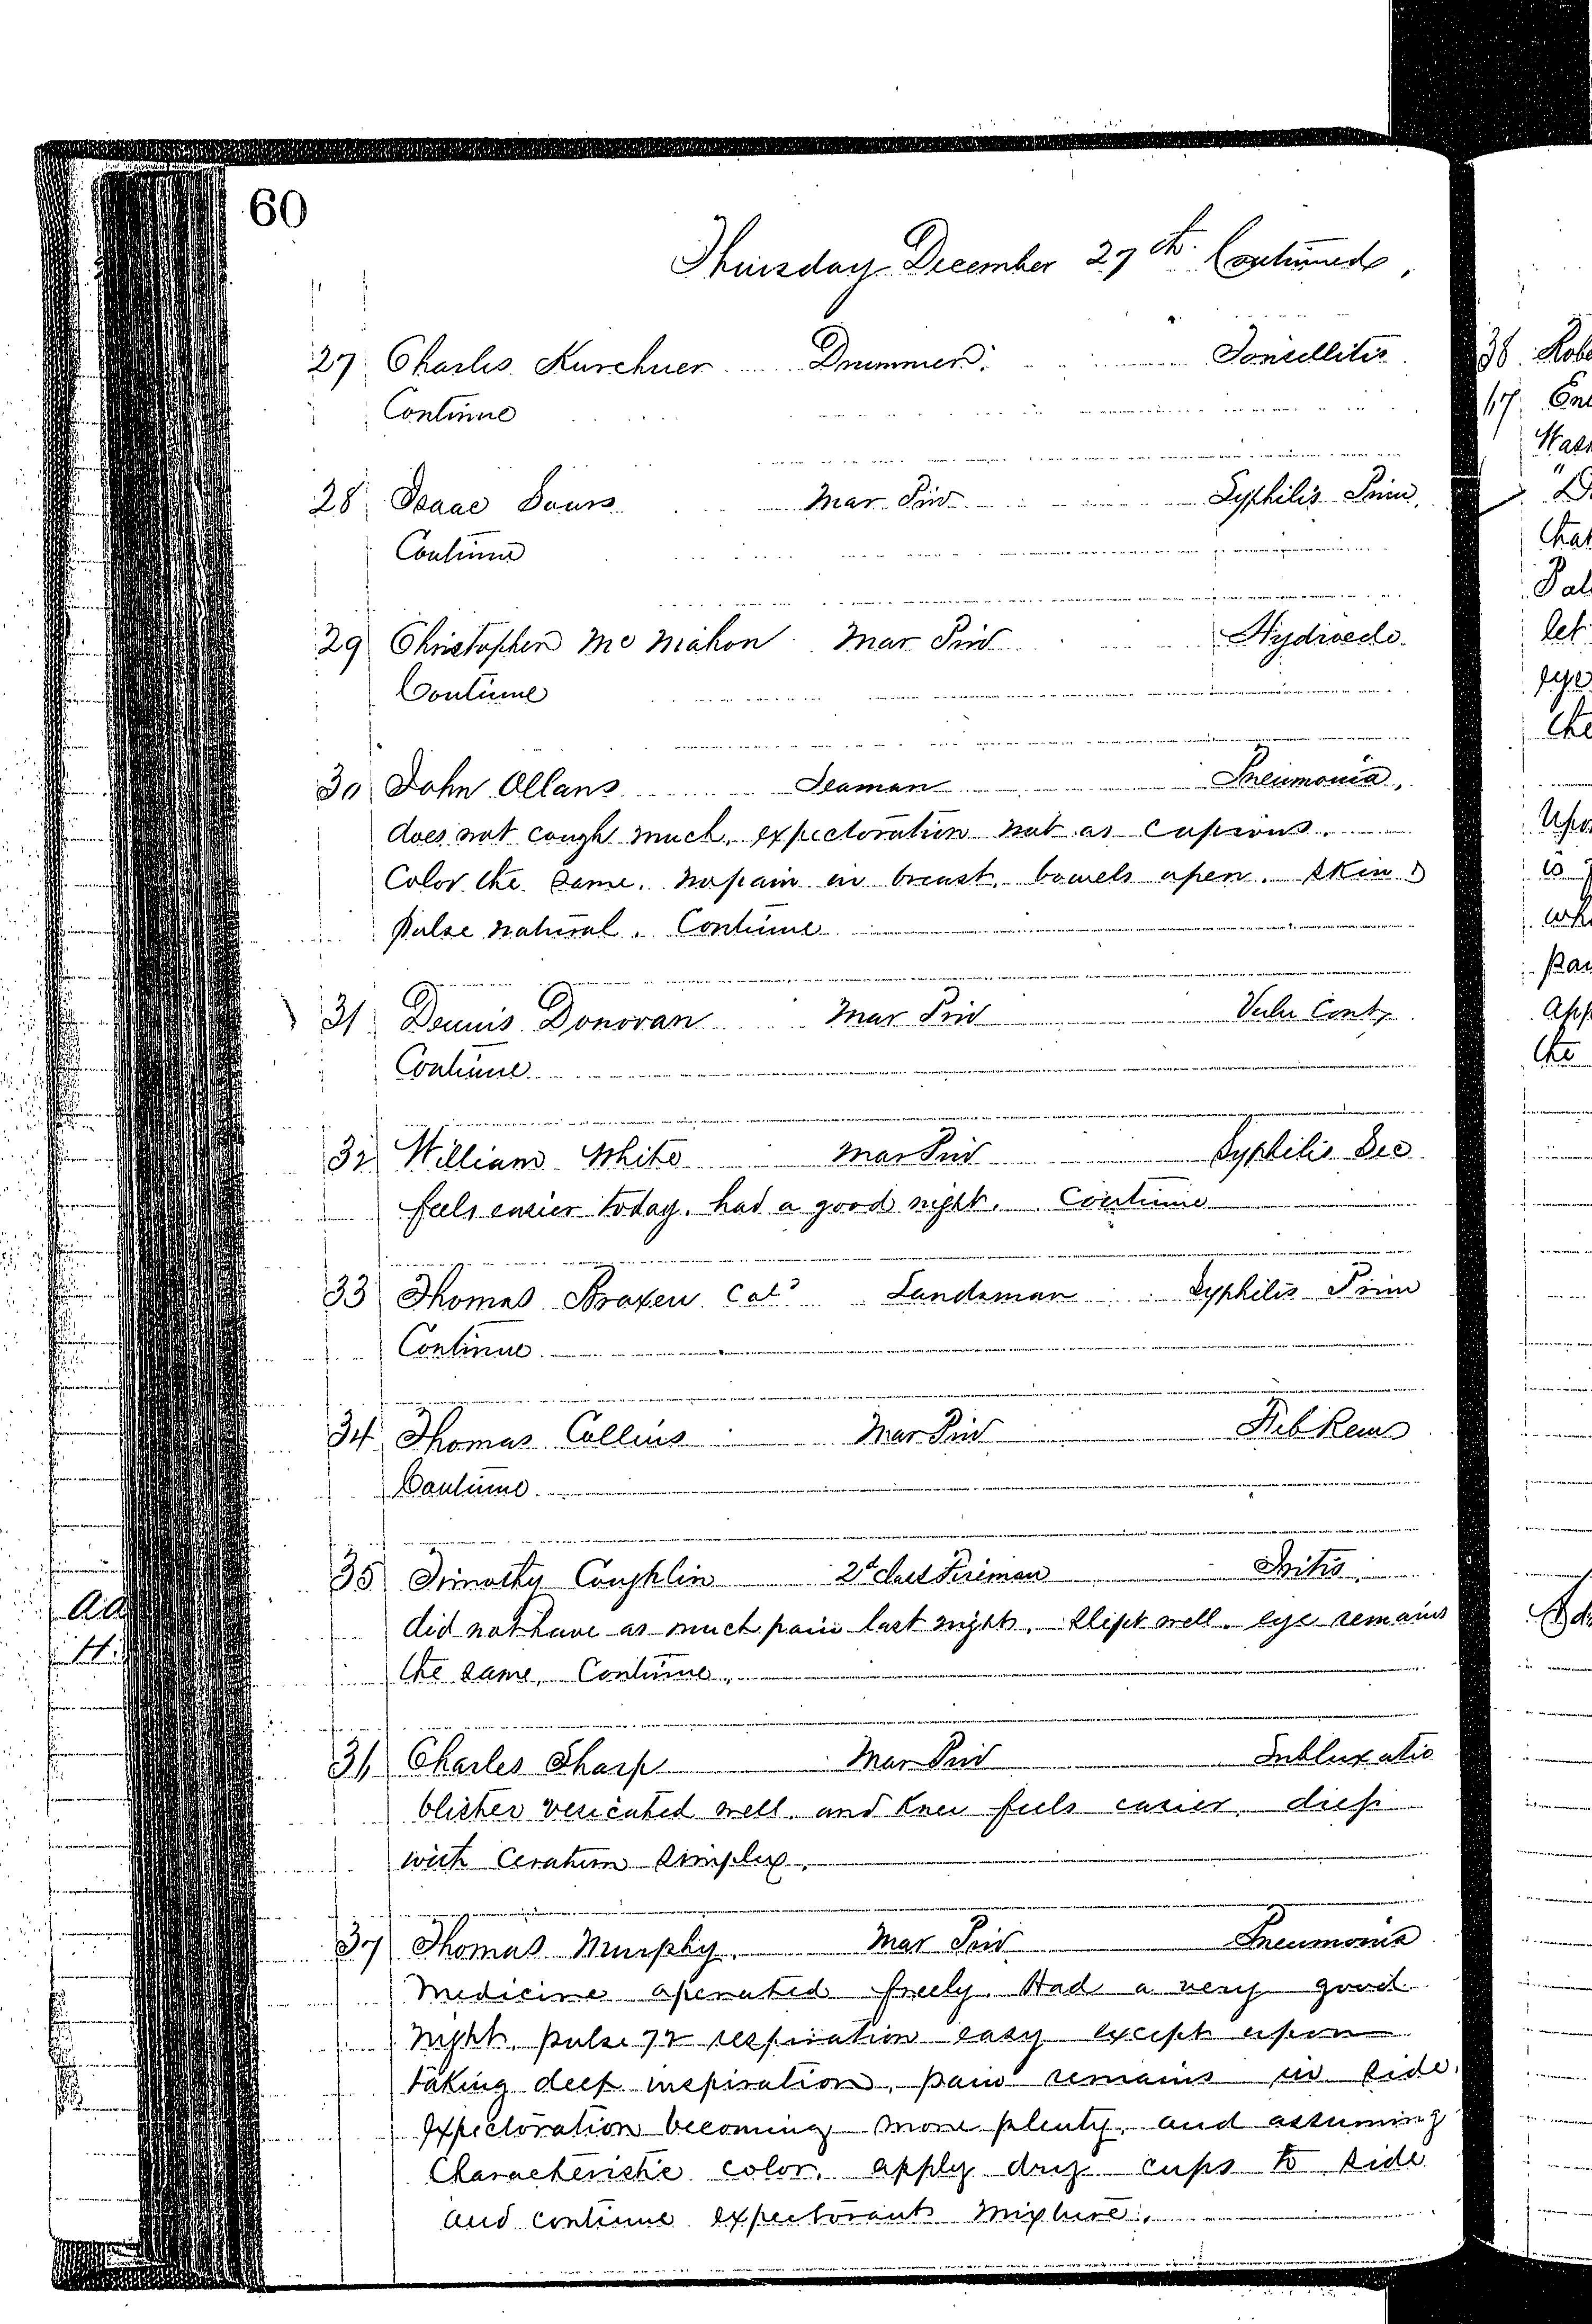 60
Thursday December 27th Continued,
27 Charles Kurchner Drummer. Tonsillitis
Continue
28 Isaac Sours Mar Priv Syphilis Prim,
Continue
29 Christopher Mc Mahon Mar Priv Hydrocele
Continue
30 John Ollans Seaman Pneumonia,
does not cough much, expectoration not as copious.
Color the same. no pain in breast, bowels open. skin &
pulse natural. Continue
31 Dennis Donovan Mar Priv Vuln Cont,
Continue
32 William White Mar Priv Syphilis Sec
feels easier today. had a good night. Continue
33 Thomas Braxen Cold Landsman Syphilis Prim
Continue
34 Thomas Collins Mar Priv Feb Rem
Continue
35 Timothy Coughlin 2d class Fireman Iritis.
did not have as much pain last night. slept well. eye remains
the same. Continue.
36 Charles Sharp Mar Priv Subluxatio
blister vesicated well. and knee feels easier. dress
with Ceratum Simplex.
37 Thomas Murphy. Mar Priv Pneumonia
Medicine operated freely. Had a very good
night. pulse 72 respiration easy except upon
taking deep inspiration. pain remains in side.
Expectoration becoming more plenty. and assuming
Characteristic color. apply dry cups to side
and continue expectorant mixture.
38
Upo
is
let
eye
the